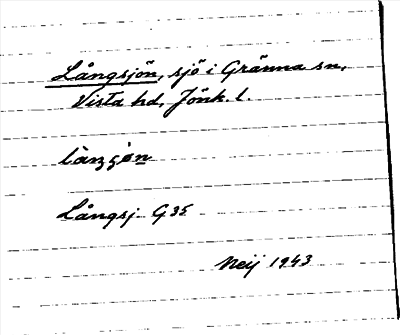 Långsjön, sjö i Gränna sn,
Vista hd, Jönk. l.
Långsj. G35
Neij 1943